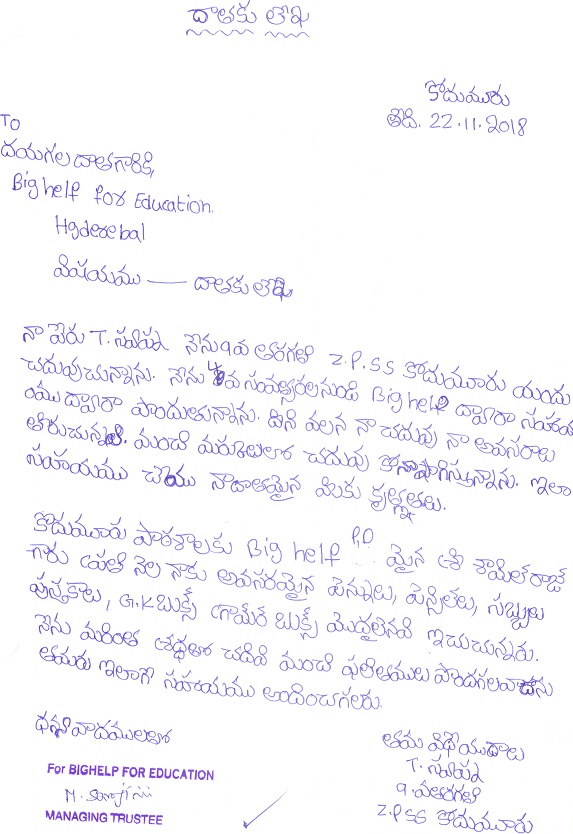 దాతకు లేఖ
కోడుమూరు
తేది. 22.11.2018
To
దయగల దాతగారికి,
Big help for Education.
Hyderebal
విషయము — దాతకు లేఖ
నా పేరు T. స్వప్న నేను 9వ తరగతి Z.P.SS కోడుమూరు యందు
చదువుచున్నాను. నేను 4వ సంవత్సరాలనుండి Big help ద్వారా సహాయ
ము ద్వారా పొందుతున్నాను. దీని వలన నా చదువు నా అవసరాలు
తీరుచున్నవి. మంచి మరుకులతో చదువు కొనసాగిస్తున్నాను. ఇలా
సహాయము చేయు నాదాతమైన మీకు కృతజ్ఞతలు.
కోడుమూరు పాఠశాలకు Big help P.D మైన శ్రీ శామీల్ రాజ్
గారు ప్రతి నెల నాకు అవసరమైన పెన్నులు, పెన్సిలలు, సబ్బులు
పుస్తకాలు, G.K బుక్స్ గ్రామర్ బుక్స్ మొదలైనవి ఇచుచున్నరు.
నేను మరింత శ్రద్ధతో చదివి మంచి ఫలితములు పొందగలవాడను
తమరు ఇలాగే సహయము అందించగలరు.
ధన్యవాదములతో
తమ విధేయురాలు
T. స్వప్న
9. వతరగతి
Z.P SS కోడుమూరు
For BIGHELP FOR EDUCATION
MANAGING TRUSTEE